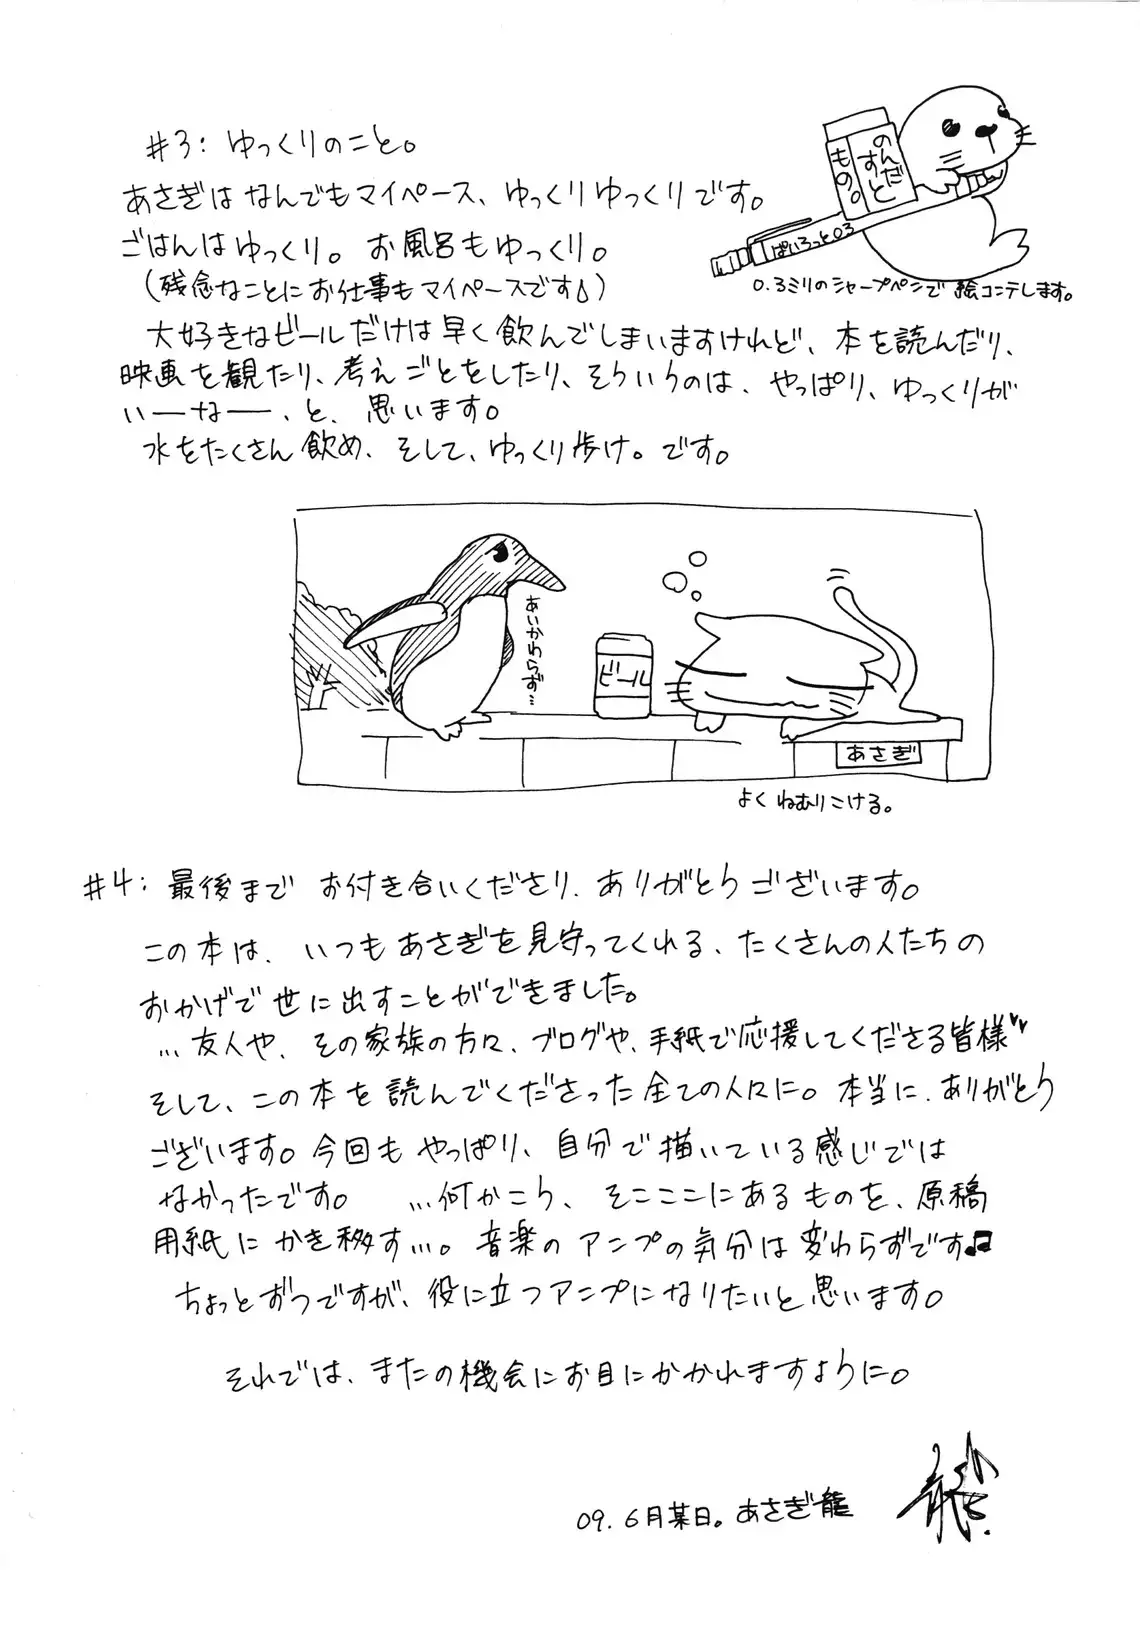 #3: ゆっくりのこと。
あさぎはなんでもマイペース、ゆっくりゆっくりです。
ごはんはゆっくり。お風呂もゆっくり。
(残念なことにお仕事もマイペースです)
のんだ
すと
もの。
ぱいろっと03
0.3ミリのシャープペンで絵コンテします。
大好きなビールだけは早く飲んでしまいますけれど、本を読んだり、
映画を観たり、考えごとをしたり、そういうのは、やっぱり、ゆっくりが
いーなー、と、思います。
水をたくさん飲め、そして、ゆっくり歩け。です。
あいかわらず…
ビール
あさぎ
よくねむりこける。
#4: 最後までお付き合いくださり、ありがとうございます。
この本は、いつもあさぎを見守ってくれる、たくさんの人たちの
おかげで世に出すことができました。
…友人や、その家族の方々、ブログや、手紙で応援してくださる皆様♥♥
そして、この本を読んでくださった全ての人々に。本当に、ありがとう
ございます。今回もやっぱり、自分で描いている感じでは
なかったです。 …何かこう、そこここにあるものを、原稿
用紙にかき移す…。音楽のアンプの気分は変わらずです♫
ちょっとずつですが、役に立つアンプになりたいと思います。
それでは、またの機会にお目にかかれますように。
09.6月某日。あさぎ龍